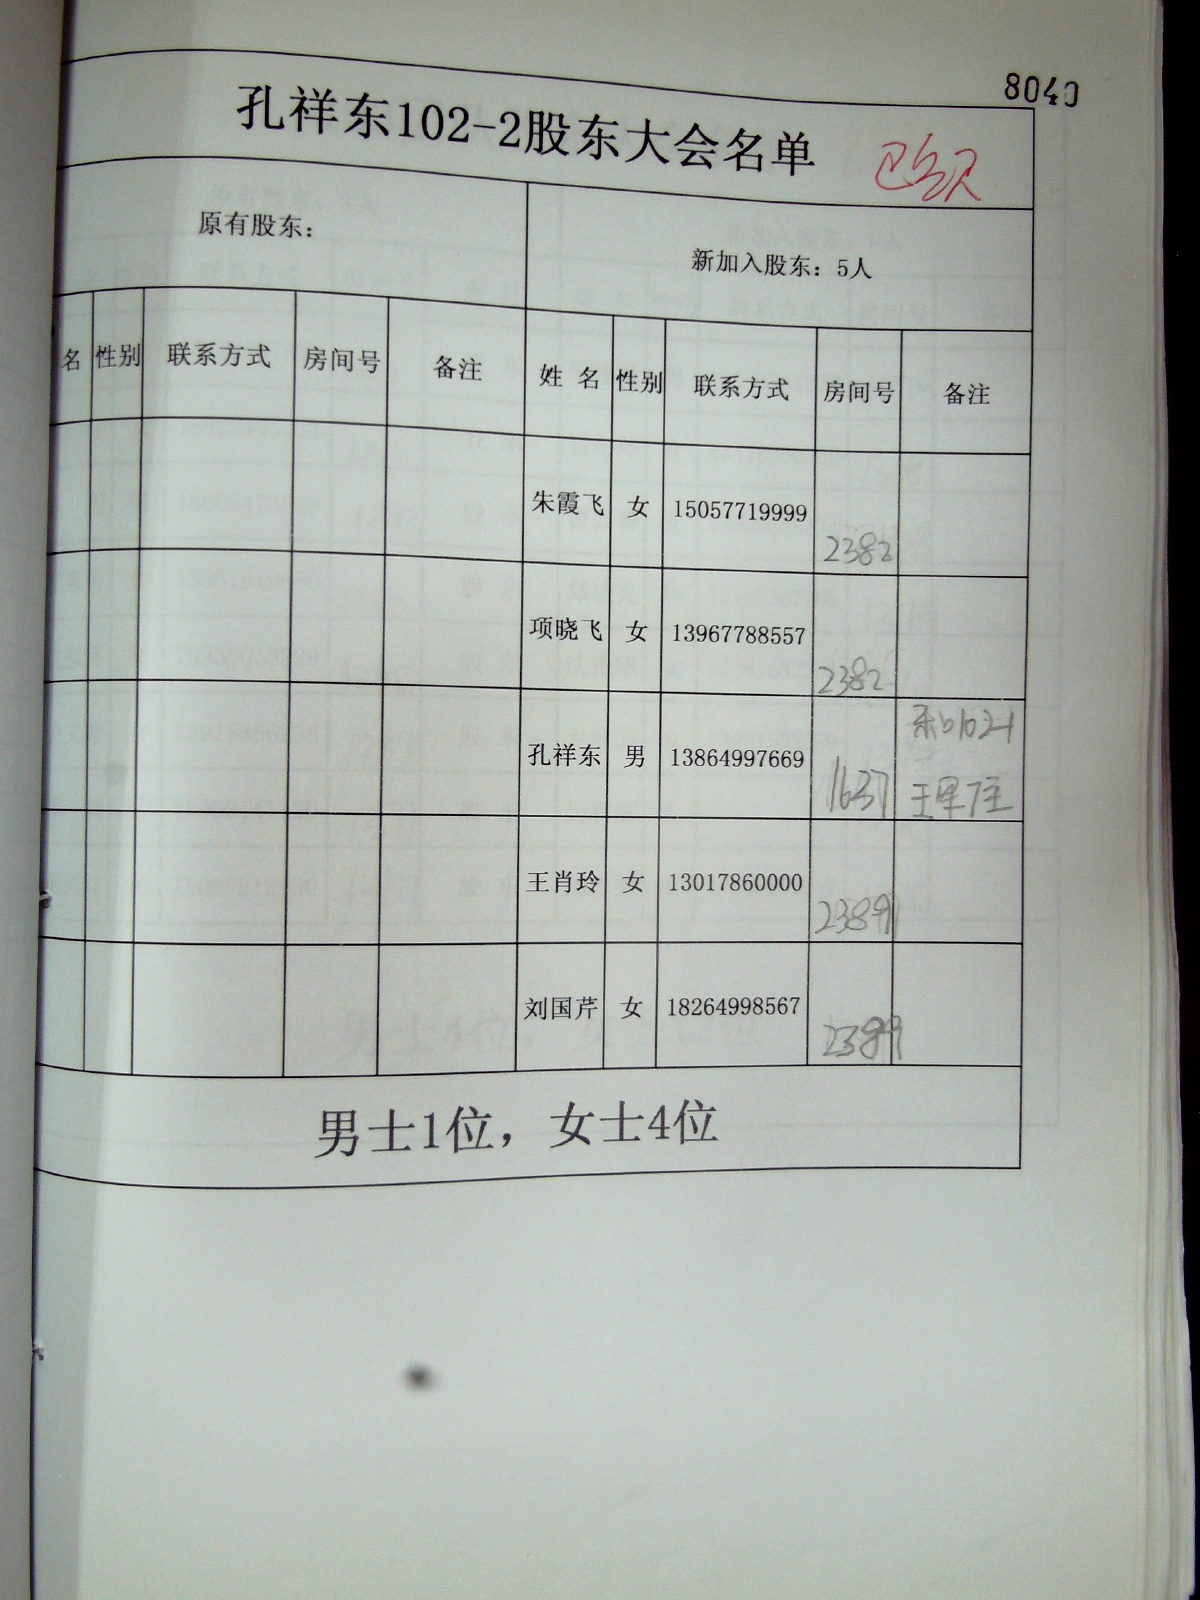 8040
孔祥东102-2股东大会名单
原有股东： 新加入股东：5人
名 性别 联系方式 房间号 备注 姓 名 性别 联系方式 房间号 备注
朱霞飞 女 15057719999 2382
项晓飞 女 13967788557 2382
孔祥东 男 13864997669 1637
王肖玲 女 13017860000 2389
刘国芹 女 18264998567 2389
男士1位，女士4位